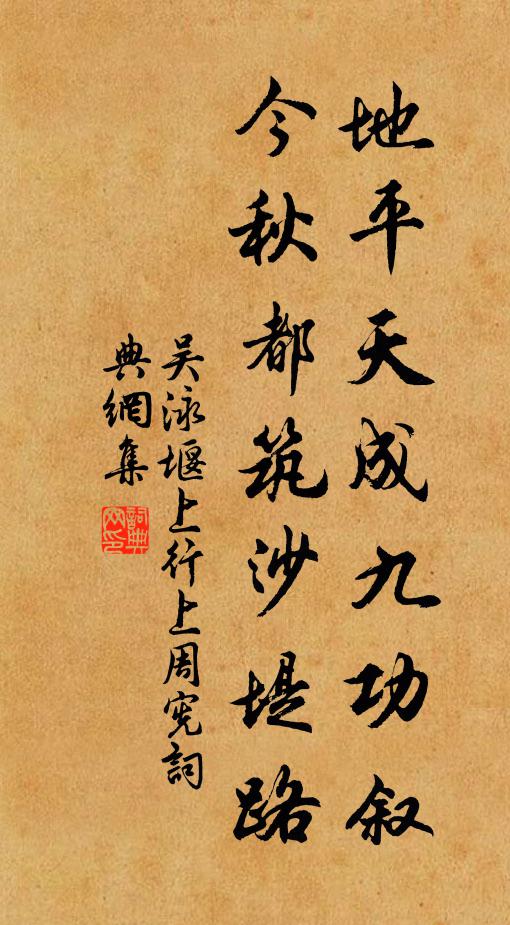 地平天成九功叙
今秋都筑沙堤路
吴泳堰上行上周宪詞
典網集
詞典網印